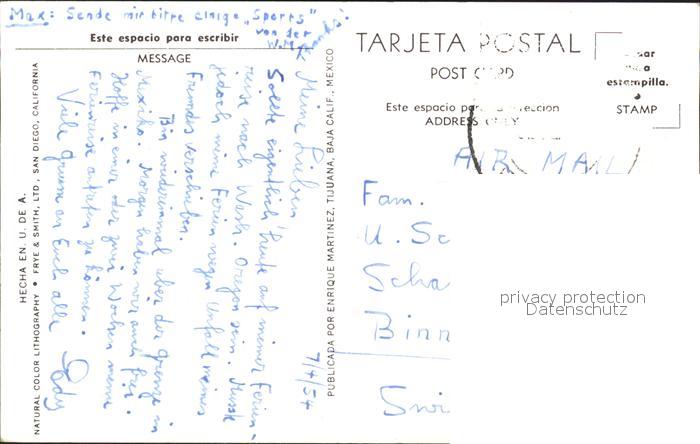 Max: Sende mir bitte einige „Sports"
von der
W.M.
Este espacio para escribir
MESSAGE
7/4/54
Meine Lieben
Sollte eigentlich heute auf meiner Ferien-
reise nach Wash. Oregon sein. Musste
jedoch meine Ferien wegen Unfall meines
Freundes verschieben.
Bin wiedereinmal über der Grenze in
Mexiko. Morgen haben wir auch frei.
Hoffe in einer oder zwei Wochen meine
Ferienreise antreten zu können.
Viele Grüsse an Euch alle
HECHA EN. U. DE A.
NATURAL COLOR LITHOGRAPHY • FRYE & SMITH, LTD., SAN DIEGO, CALIFORNIA
PUBLICADA POR ENRIQUE MARTINEZ, TIJUANA, BAJA CALIF., MEXICO
TARJETA POSTAL
POST CARD
Este espacio para dirección
ADDRESS ONLY
estampilla.
STAMP
AIR MAIL
Fam.
U. Sc
Scha
Binn
privacy protection
Datenschutz